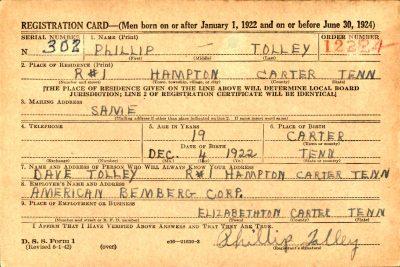 REGISTRATION CARD—(Men born on or after January 1, 1922 and on or before June 30, 1924)
SERIAL NUMBER 1. NAME (Print) ORDER NUMBER
N 308 PHILLIP TOLLEY 12324
(First) (Middle) (Last)
2. PLACE OF RESIDENCE (Print)
R#1 HAMPTON CARTER TENN
(Number and street) (Town, township, village, or city) (County) (State)
[THE PLACE OF RESIDENCE GIVEN ON THE LINE ABOVE WILL DETERMINE LOCAL BOARD
JURISDICTION; LINE 2 OF REGISTRATION CERTIFICATE WILL BE IDENTICAL]
3. MAILING ADDRESS
SAME
[Mailing address if other than place indicated on line 2. If same insert word same]
4. TELEPHONE 5. AGE IN YEARS 6. PLACE OF BIRTH
19 CARTER
DATE OF BIRTH (Town or county)
DEC. 4 1922 TENN
(Exchange) (Number) (Mo.) (Day) (Yr.) (State or country)
7. NAME AND ADDRESS OF PERSON WHO WILL ALWAYS KNOW YOUR ADDRESS
DAVE TOLLEY R#1 HAMPTON CARTER TENN
8. EMPLOYER'S NAME AND ADDRESS
AMERICAN BEMBERG CORP.
9. PLACE OF EMPLOYMENT OR BUSINESS
ELIZABETHTON CARTER TENN
(Number and street or R. F. D. number) (Town) (County) (State)
I AFFIRM THAT I HAVE VERIFIED ABOVE ANSWERS AND THAT THEY ARE TRUE.
D. S. S. Form 1
(Revised 6-1-42) (over) Phillip Tolley
(Registrant's signature)